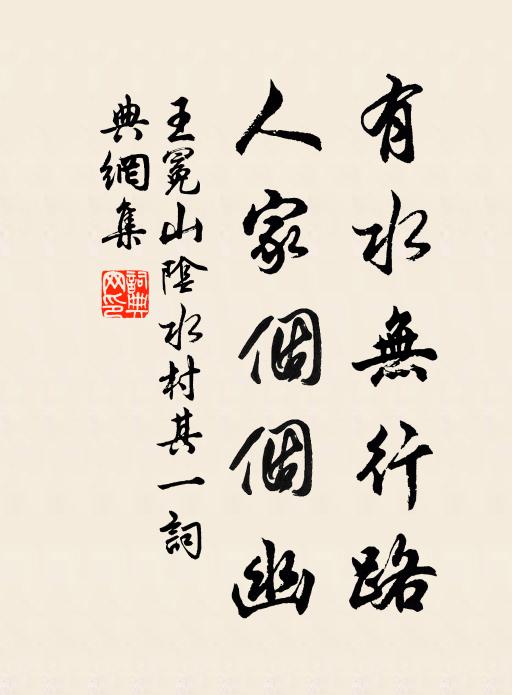 有水無行路
人家個個幽
王冕山陰水村其一詞
典網集
詞典
网印